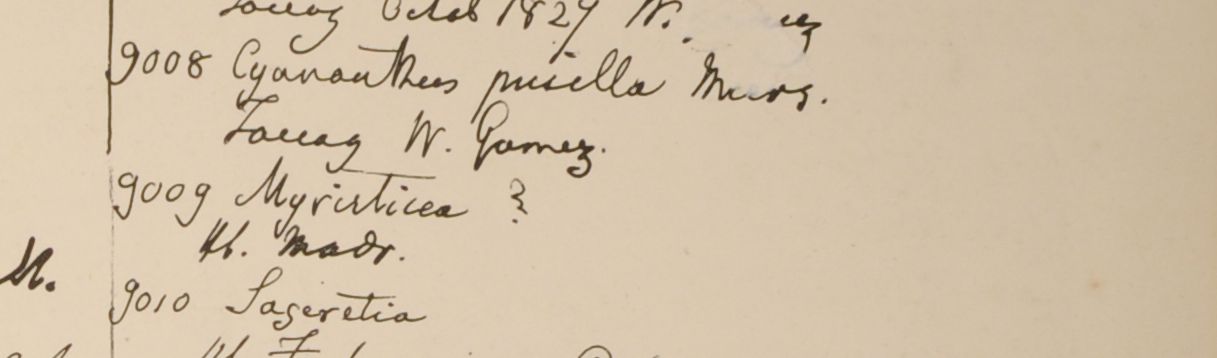 Tavoy Octob 1827 W.
9008 Cyananthus pusilla Murs.
Tavoy W. Gomez.
9009 Myristicea ?
Hb. Madr.
9010 Sageretia